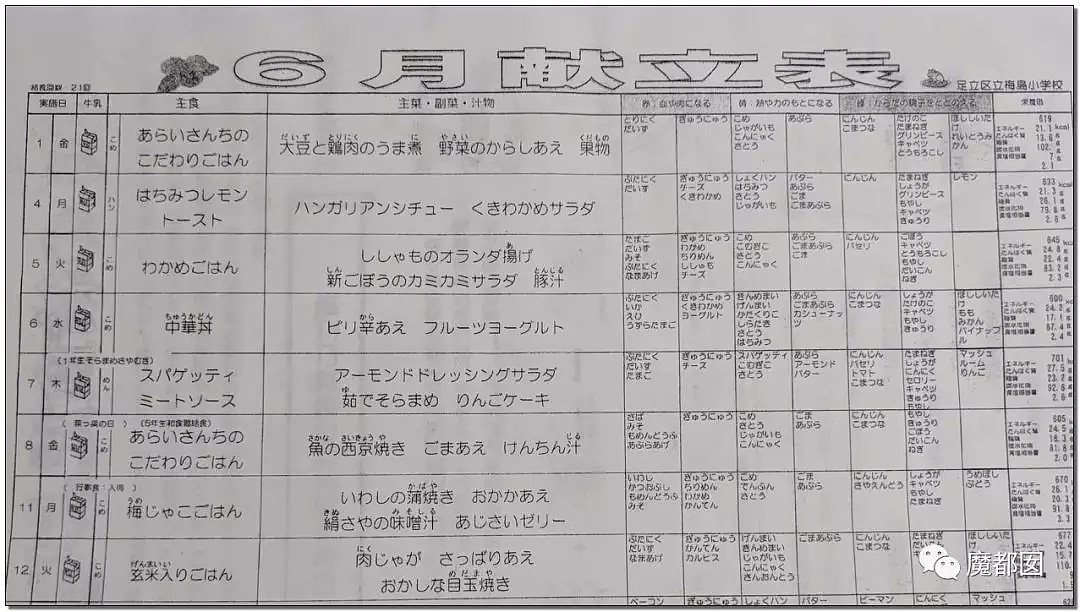 6月献立表
給食回数 21回
足立区立梅島小学校
実施日 牛乳 主食 主菜・副菜・汁物 赤：血や肉になる 黄：熱や力のもとになる 緑：からだの調子をととのえる 栄養価
1 金 こめ
あらいさんちの
こだわりごはん
だいず とりにく に やさい くだもの
大豆と鶏肉のうま煮 野菜のからしあえ 果物
とりにく
だいず
ぎゅうにゅう
こめ
じゃがいも
こんにゃく
さとう
あぶら
にんじん
こまつな
たけのこ
たまねぎ
グリンピース
キャベツ
とうもろこし
ほししいたけ
れいとうみかん
エネルギー 619
たんぱく質 21.1
脂質 13.6
炭水化物 102.
食塩相当量
2.1
4 月 パン
はちみつレモン
トースト
ハンガリアンシチュー くきわかめサラダ
ぶたにく
だいず
ぎゅうにゅう
チーズ
くきわかめ
しょくパン
はちみつ
さとう
じゃがいも
バター
あぶら
ごま
ごまあぶら
にんじん
たまねぎ
しょうが
グリンピース
もやし
キャベツ
きゅうり
レモン
エネルギー 633 kcal
たんぱく質 21.3
脂質 26.1
炭水化物 79.8
食塩相当量 2.8
5 火 こめ
わかめごはん
ししゃものオランダ揚げ
しん とんじる
新ごぼうのカミカミサラダ 豚汁
たまご
だいず
みそ
ぶたにく
なまあげ
ぎゅうにゅう
わかめ
ちりめん
ししゃも
チーズ
こめ
こむぎこ
さとう
こんにゃく
あぶら
ごまあぶら
ごま
にんじん
パセリ
ごぼう
キャベツ
とうもろこし
もやし
だいこん
ねぎ
エネルギー 645
たんぱく質 24.8
脂質 22.4
炭水化物 83.2
食塩相当量 2.3
6 水 こめ
ちゅうかどん
中華丼
から
ピリ辛あえ フルーツヨーグルト
ぶたにく
いか
えび
うずらたまご
ぎゅうにゅう
くきわかめ
ヨーグルト
きんめまい
げんまい
かたくりこ
しらたき
さとう
はちみつ
あぶら
ごまあぶら
カシューナッツ
にんじん
こまつな
しょうが
たけのこ
キャベツ
もやし
きゅうり
ほししいたけ
もも
みかん
パイナップル
エネルギー 600
たんぱく質 24.2
脂質 17.1
炭水化物 87.4
食塩相当量 2.4
(1年生そらまめさやむき)
7 木 めん
スパゲッティ
ミートソース
アーモンドドレッシングサラダ
ゆ
茹でそらまめ りんごケーキ
ぶたにく
だいず
たまご
ぎゅうにゅう
チーズ
スパゲッティ
こむぎこ
さとう
あぶら
アーモンド
バター
にんじん
パセリ
トマト
こまつな
たまねぎ
しょうが
にんにく
セロリー
キャベツ
きゅうり
もやし
マッシュルーム
りんご
エネルギー 701
たんぱく質 27.5
脂質 23.2
炭水化物 92.6
食塩相当量 2.6
8 金 こめ
あらいさんちの
こだわりごはん
さかな さいきょう や じる
魚の西京焼き ごまあえ けんちん汁
さば
みそ
もめんどうふ
あぶらあげ
ぎゅうにゅう
こめ
さとう
じゃがいも
こんにゃく
ごま
あぶら
にんじん
こまつな
もやし
きゅうり
ごぼう
だいこん
ねぎ
エネルギー 605
たんぱく質 24.5
脂質 18.3
炭水化物 81.8
食塩相当量 2.0
(行事食：入梅)
11 月 こめ
うめ
梅じゃこごはん
かばや
いわしの蒲焼き おかかあえ
きぬ みそしる
絹さやの味噌汁 あじさいゼリー
いわし
かつおぶし
もめんどうふ
みそ
ぎゅうにゅう
ちりめん
わかめ
かんてん
こめ
でんぷん
さとう
ごま
あぶら
にんじん
さやえんどう
しょうが
キャベツ
もやし
たまねぎ
うめぼし
ぶどう
エネルギー 670
たんぱく質 26.1
脂質 20.3
炭水化物 91.8
食塩相当量 3.3
12 火 こめ
げんまいい
玄米入りごはん
にく
肉じゃが さっぱりあえ
めだまや
おかしな目玉焼き
ぶたにく
だいず
なまあげ
ぎゅうにゅう
かんてん
カルピス
げんまい
きんめまい
じゃがいも
こんにゃく
さとう
ごまあぶら
にんじん
こまつな
たまねぎ
ほししいたけ
エネルギー 677
22.4
15.7
110.
ベーコン
ぎゅうにゅう
しょくパン
バター
ピーマン
にんにく
マッシュ
魔都囡